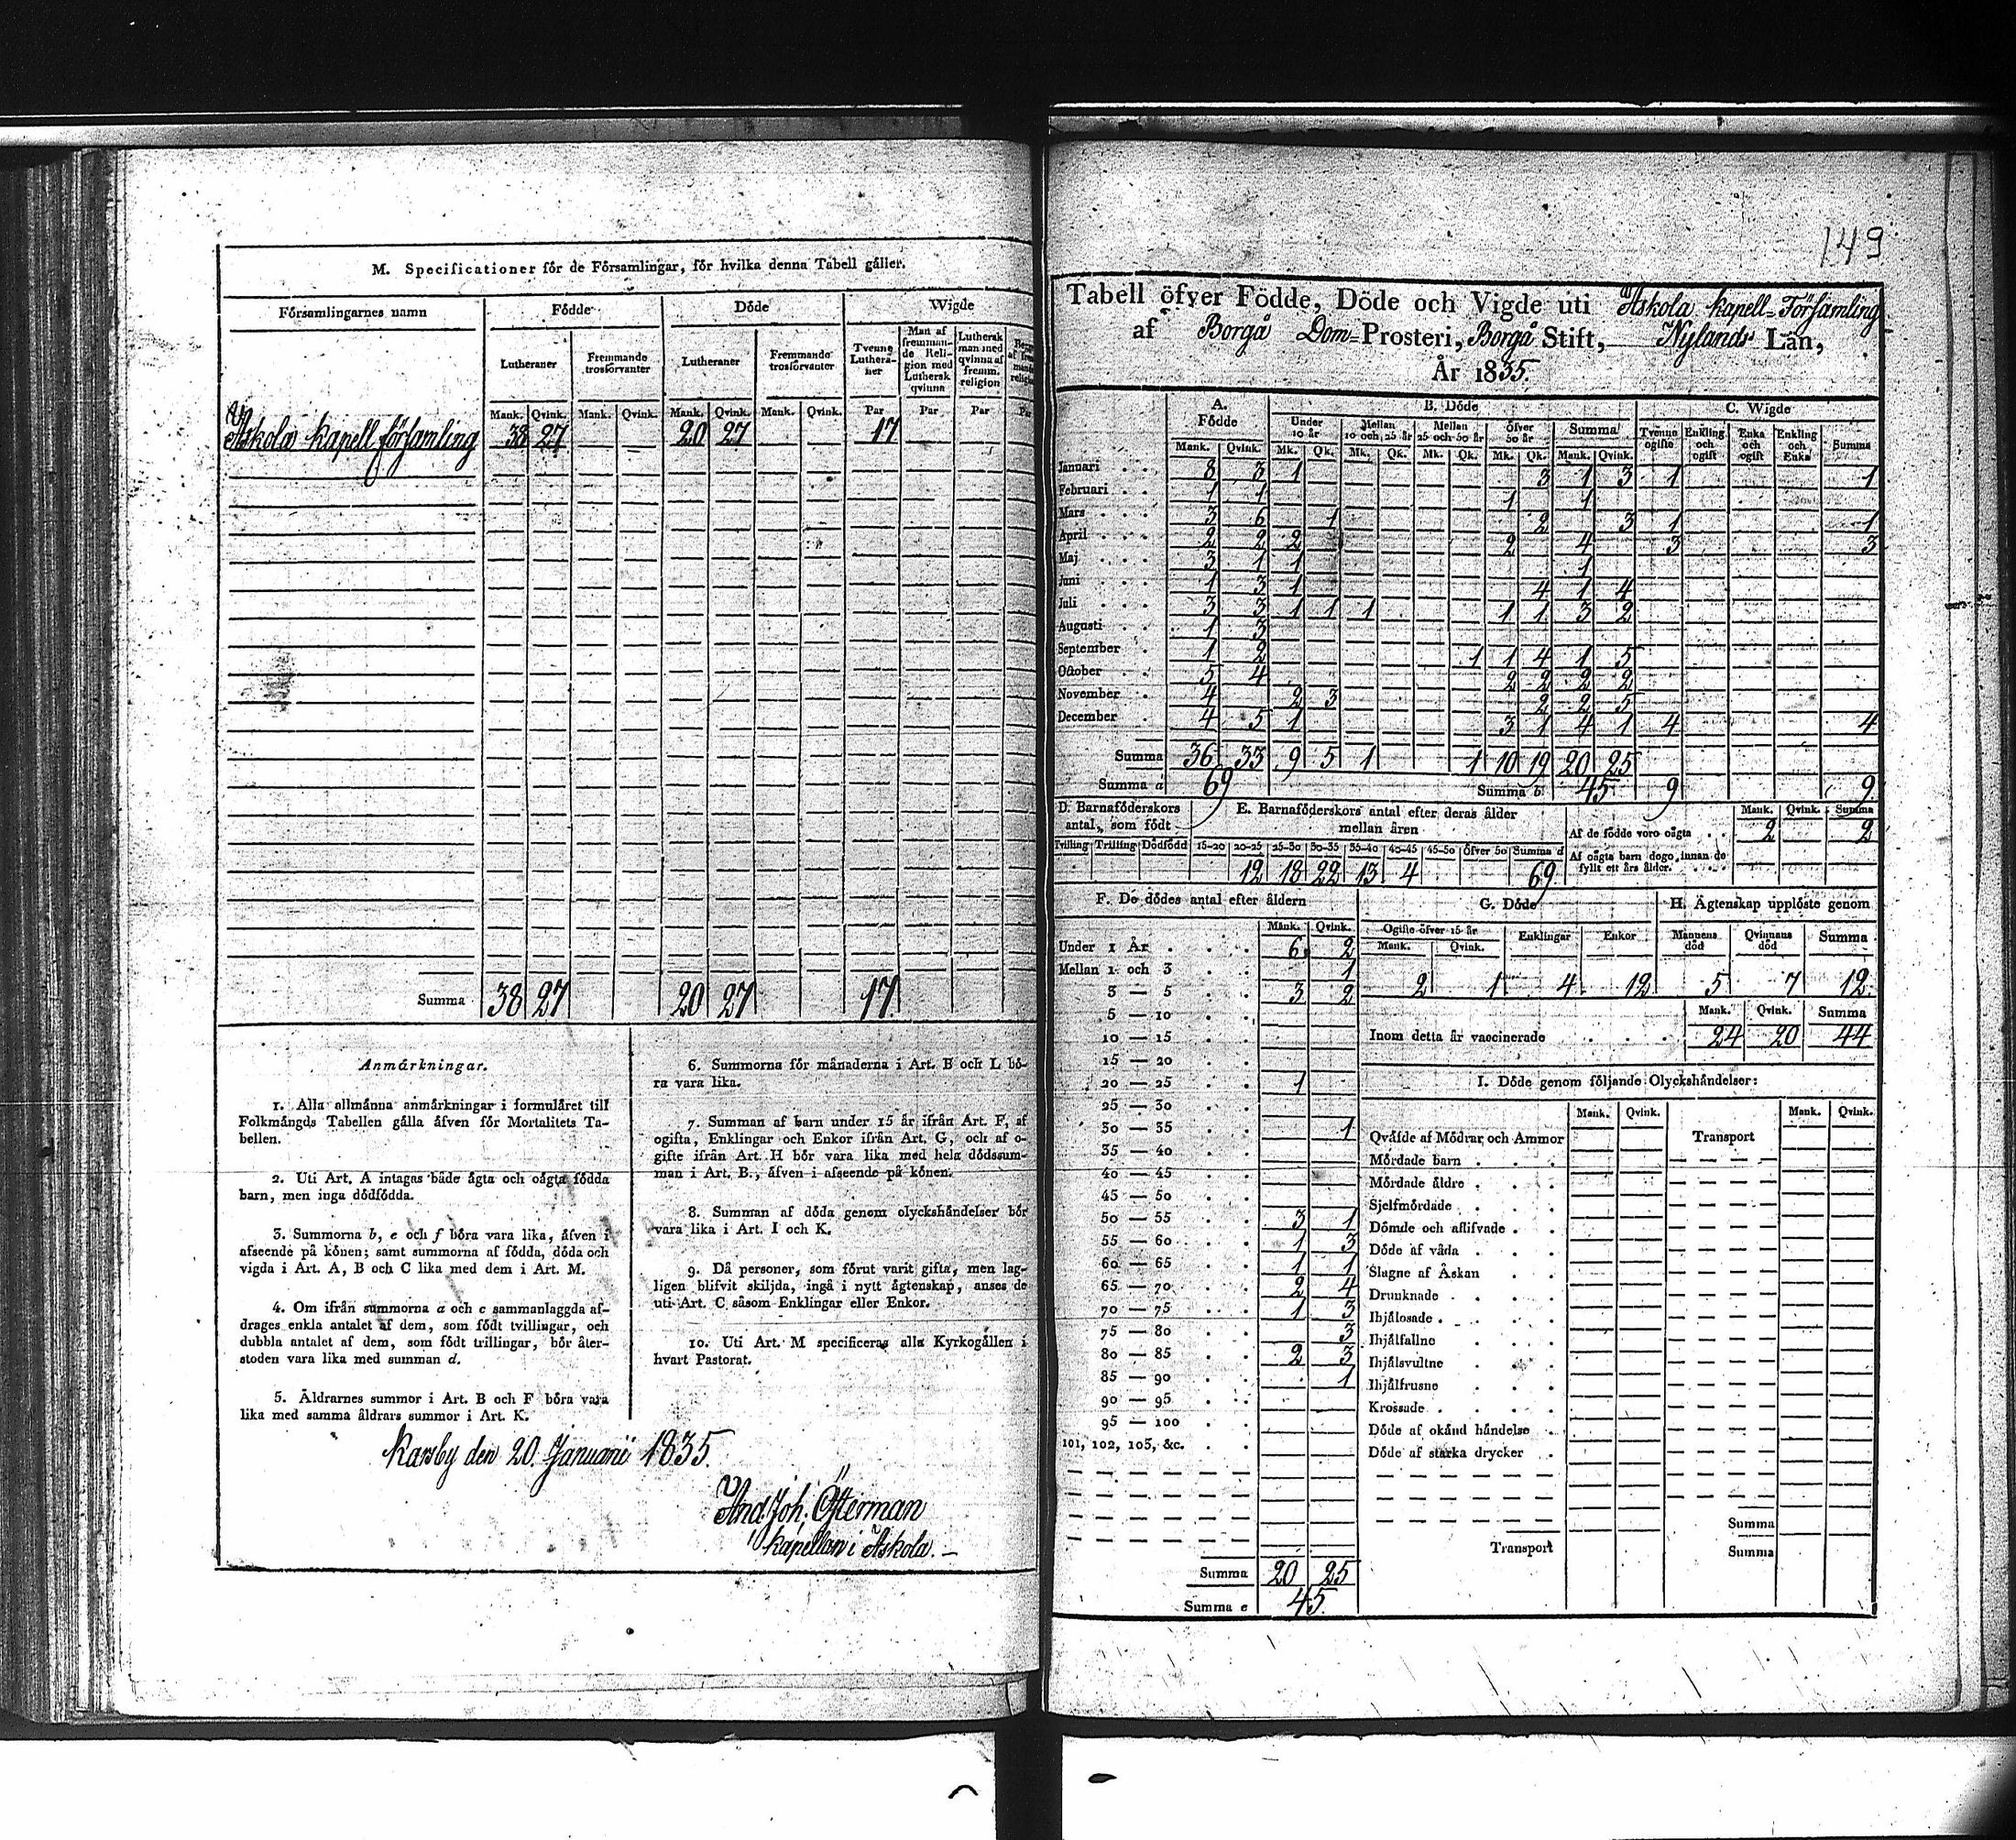 M. Specificationer för de Församlingar, för hvilka denna Tabell gäller.
Församlingarnes namn Födde Döde Wigde
Lutheraner Fremmande trosförvanter Lutheraner Fremmande trosförvanter Tvenne Lutheraner Man af fremmande Religion med Luthersk qvinna Luthersk man med qvinna af fremm. religion
Mank. Qvink. Mank. Qvink. Mank. Qvink. Mank. Qvink. Par Par Par Par
Askola kapell församling 38 27 20 27 17
Summa 38 27 20 27 17
Anmärkningar.
1. Alla allmänna anmärkningar i formuläret till
Folkmängds Tabellen gälla äfven för Mortalitets Ta-
bellen.
2. Uti Art. A intagas både ägta och oägta födda
barn, men inga dödfödda.
3. Summorna b, e och f böra vara lika, äfven i
afseende på könen; samt summorna af födda, döda och
vigda i Art. A, B och C lika med dem i Art. M.
4. Om ifrån summorna a och c sammanlaggda af-
drages enkla antalet af dem, som födt tvillingar, och
dubbla antalet af dem, som födt trillingar, bör åter-
stoden vara lika med summan d.
5. Åldrarnes summor i Art. B och F böra vara
lika med samma åldrars summor i Art. K.
6. Summorna för månaderna i Art. B och L bö-
ra vara lika.
7. Summan af barn under 15 år ifrån Art. F, af
ogifta, Enklingar och Enkor ifrån Art. G, och af o-
gifte ifrån Art. H bör vara lika med hela dödssum-
man i Art. B., äfven i afseende på könen.
8. Summan af döda genom olyckshändelser bör
vara lika i Art. I och K.
9. Då personer, som förut varit gifta, men lag-
ligen blifvit skiljda, ingå i nytt ägtenskap, anses de
uti Art. C såsom Enklingar eller Enkor.
10. Uti Art. M specificeras alla Kyrkogällen i
hvart Pastorat.
Karsby den 20 Januarii 1835.
And. Joh. Österman
kapellan i Askola.
149
Tabell öfver Födde, Döde och Vigde uti Askola kapell-Församling
af Borgå Dom-Prosteri, Borgå Stift, Nylands Län,
År 1835.
A. Födde B. Döde C. Wigde
Under 10 år Mellan 10 och 25 år Mellan 25 och 50 år Öfver 50 år Summa Tvenne ogifte Enkling och ogift Enka och ogift Enkling och Enka Summa
Mank. Qvink. Mk. Qk. Mk. Qk. Mk. Qk. Mk. Qk. Mank. Qvink.
Januari 8 3 1 3 1 3 1 1
Februari 1 1 1 1
Mars 3 6 1 2 3 1 1
April 2 2 2 2 4 3 3
Maj 3 1 1 1
Juni 1 3 1 4 1 4
Juli 3 3 1 1 1 1 1 3 2
Augusti 1 3
September 1 2 1 1 4 1 5
October 5 4 2 2 2 2
November 4 2 3 2 2 5
December 4 5 1 3 1 4 1 4 4
Summa 36 33 9 5 1 1 10 19 20 25
Summa a 69 Summa b 45 9 9
D. Barnaföderskors antal, som födt
Tvilling Trilling Dödfödd
E. Barnaföderskors antal efter deras ålder mellan åren
15-20 20-25 25-30 30-35 35-40 40-45 45-50 Öfver 50 Summa d
12 18 22 13 4 69
Mank. Qvink. Summa
Af de födde voro oägta 2 2
Af oägta barn dogo innan de fyllt ett års ålder.
F. De dödes antal efter åldern
Mank. Qvink.
Under 1 År 6 2
Mellan 1 och 3 1
3 — 5 3 2
5 — 10
10 — 15
15 — 20
20 — 25 1
25 — 30
30 — 35 1
35 — 40
40 — 45
45 — 50
50 — 55 3 1
55 — 60 1 3
60 — 65 1 1
65 — 70 2 4
70 — 75 1 3
75 — 80 3
80 — 85 2 3
85 — 90 1
90 — 95
95 — 100
101, 102, 103, &c.
Summa 20 25
Summa e 45.
G. Döde H. Ägtenskap upplöste genom
Ogifte öfver 15 år Enklingar Enkor Mannens död Qvinnans död Summa
Mank. Qvink.
2 1 4 12 5 7 12
Mank. Qvink. Summa
Inom detta år vaccinerade 24 20 44
I. Döde genom följande Olyckshändelser:
Mank. Qvink. Transport Mank. Qvink.
Qväfde af Mödrar och Ammor
Mördade barn
Mördade äldre
Sjelfmördade
Dömde och aflifvade
Döde af våda
Slagne af Åskan
Drunknade
Ihjälosade
Ihjälfallne
Ihjälsvultne
Ihjälfrusne
Krossade
Döde af okänd händelse
Döde af starka drycker
Summa
Transport Summa